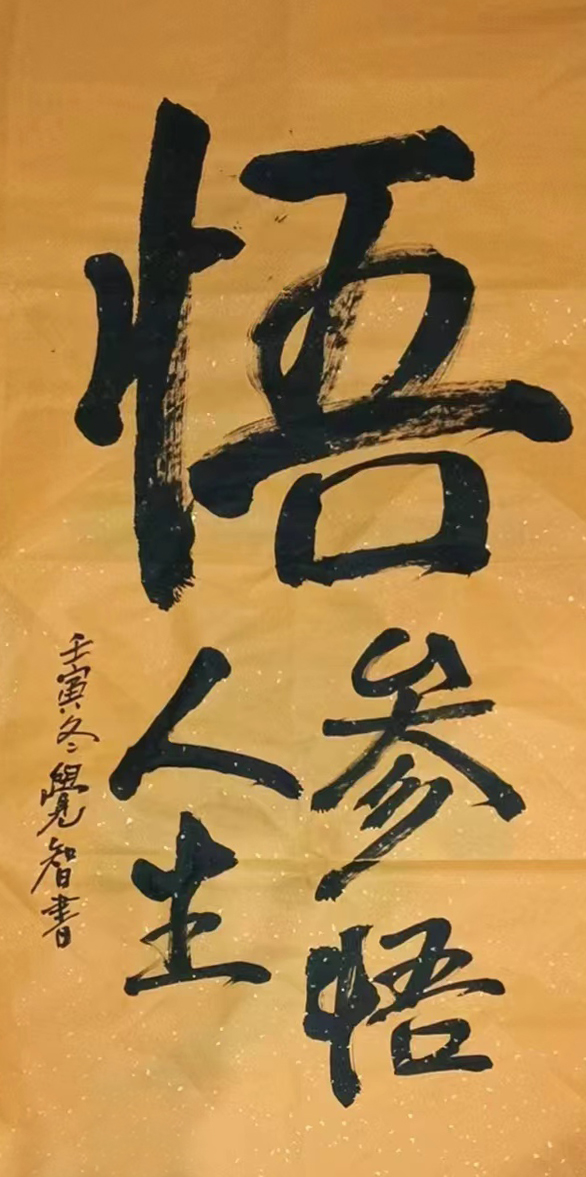 悟
参悟
人生
壬寅冬覺智書